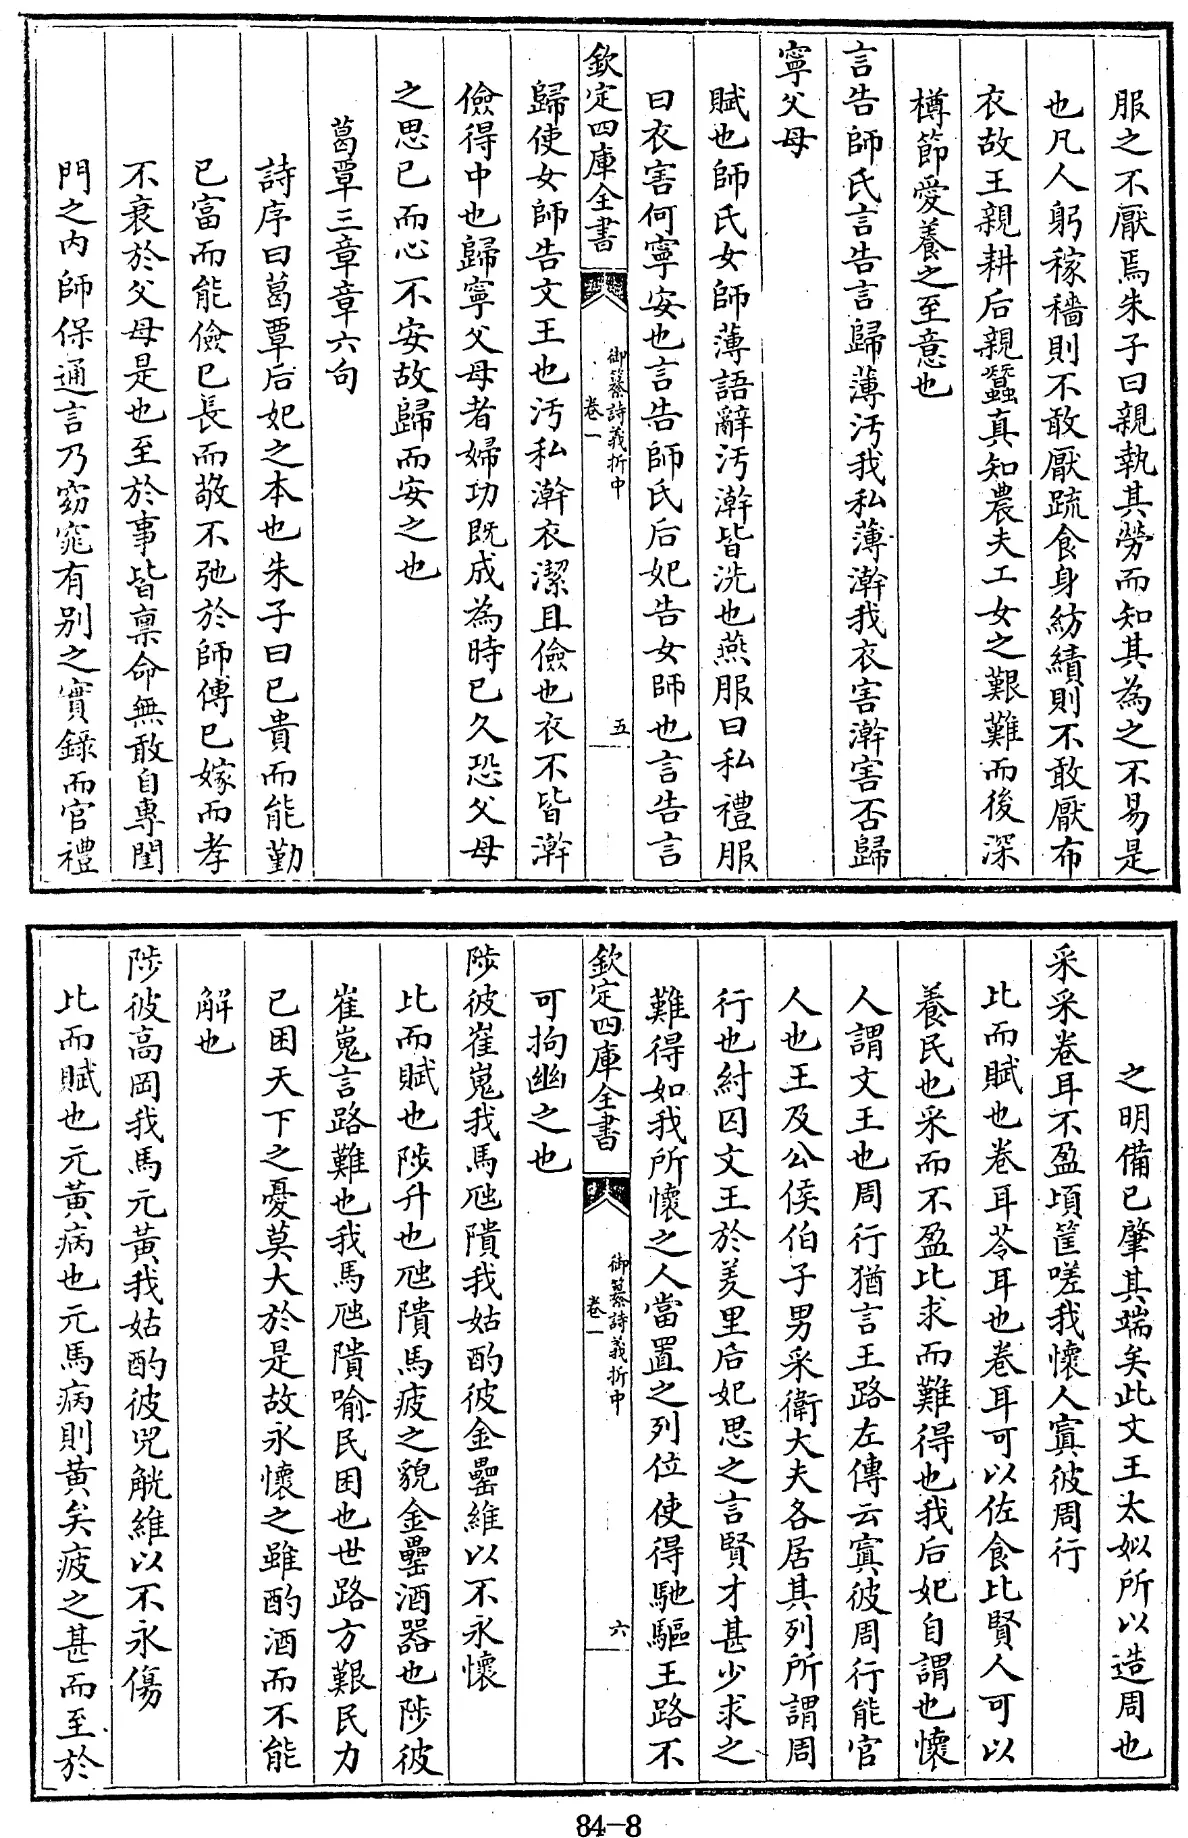 服之不厭焉朱子曰親執其勞而知其為之不易是
也凡人躬稼穡則不敢厭疏食身紡績則不敢厭布
衣故王親耕后親蠶真知農夫工女之艱難而後深
樽節愛養之至意也
言告師氏言告言歸薄汚我私薄澣我衣害澣害否歸
寧父母
賦也師氏女師薄語辭汚澣皆洗也燕服曰私禮服
曰衣害何寧安也言告師氏后妃告女師也言告言
欽定四庫全書
御纂詩義折中
卷一
五
歸使女師告文王也汚私澣衣潔且儉也衣不皆澣
儉得中也歸寧父母者婦功既成為時已久恐父母
之思已而心不安故歸而安之也
葛覃三章章六句
詩序曰葛覃后妃之本也朱子曰已貴而能勤
已富而能儉已長而敬不弛於師傅已嫁而孝
不衰於父母是也至於事皆禀命無敢自專閨
門之内師保通言乃窈窕有别之實錄而官禮
之明備已肇其端矣此文王太姒所以造周也
采采卷耳不盈頃筐嗟我懷人寘彼周行
比而賦也卷耳苓耳也卷耳可以佐食比賢人可以
養民也采而不盈比求而難得也我后妃自謂也懷
人謂文王也周行猶言王路左傳云寘彼周行能官
人也王及公侯伯子男采衛大夫各居其列所謂周
行也紂囚文王於羑里后妃思之言賢才甚少求之
難得如我所懷之人當置之列位使得馳驅王路不
欽定四庫全書
御纂詩義折中
卷一
六
可拘幽之也
陟彼崔嵬我馬虺隤我姑酌彼金罍維以不永懷
比而賦也陟升也虺隤馬疲之貌金罍酒器也陟彼
崔嵬言路難也我馬虺隤喻民困也世路方艱民力
已困天下之憂莫大於是故永懷之雖酌酒而不能
解也
陟彼高岡我馬元黃我姑酌彼兕觥維以不永傷
比而賦也元黃病也元馬病則黄矣疲之甚而至於
84-8